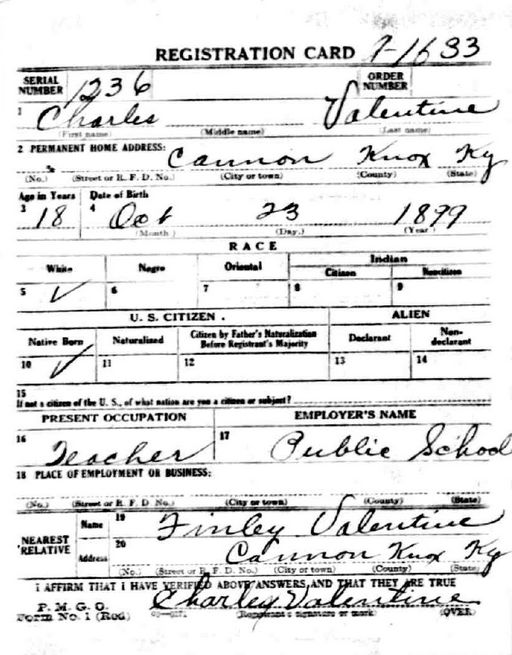 REGISTRATION CARD
SERIAL NUMBER 1236 ORDER NUMBER A-1633
1 Charles Valentine
(First name) (Middle name) (Last name)
2 PERMANENT HOME ADDRESS: Cannon Knox Ky
(No.) (Street or R. F. D. No.) (City or town) (County) (State)
Age in Years Date of Birth
3 18 4 Oct 23 1899
(Month) (Day.) (Year)
RACE
White Negro Oriental Indian
Citizen Noncitizen
5 ✓ 6 7 8 9
U. S. CITIZEN. ALIEN
Native Born Naturalized Citizen by Father's Naturalization Before Registrant's Majority Declarant Non-declarant
10 ✓ 11 12 13 14
15
If not a citizen of the U. S., of what nation are you a citizen or subject?
PRESENT OCCUPATION EMPLOYER'S NAME
16 Teacher 17 Public School
18 PLACE OF EMPLOYMENT OR BUSINESS:
(No.) (Street or R. F. D. No.) (City or town) (County) (State)
NEAREST RELATIVE Name 19 Finley Valentine
Address 20 Cannon Knox Ky
(No.) (Street or R. F. D. No.) (City or town) (County) (State)
I AFFIRM THAT I HAVE VERIFIED ABOVE ANSWERS AND THAT THEY ARE TRUE
P. M. G. O.
Form No. 1 (Red) Charley Valentine
(Registrant's signature or mark) (OVER)